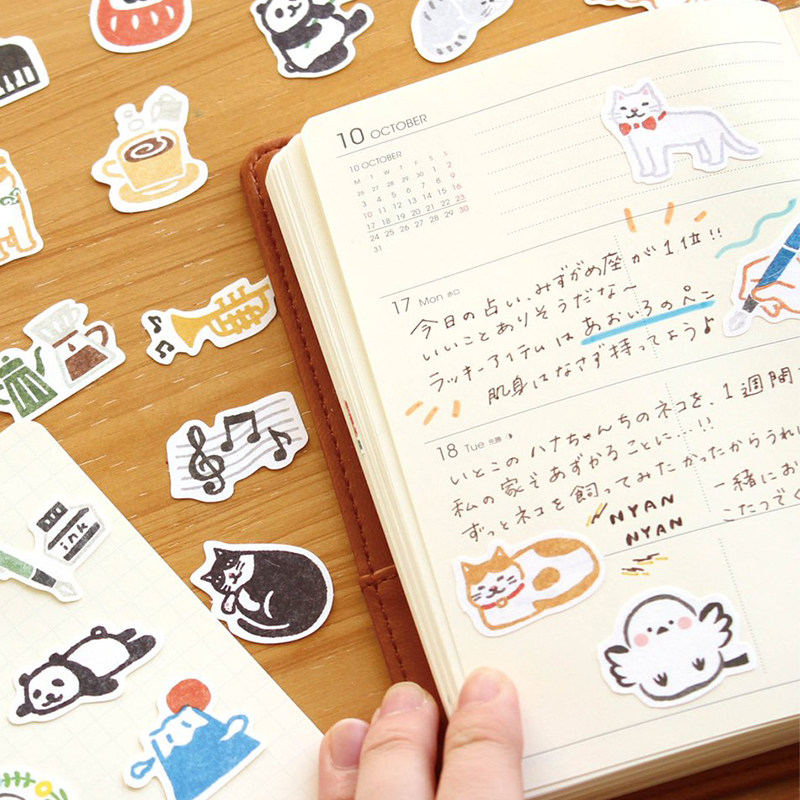 10 OCTOBER
10 OCTOBER
M T W T F S S
26 27 28 29 30 1 2
3 4 5 6 7 8 9
10 11 12 13 14 15 16
17 18 19 20 21 22 23
24 25 26 27 28 29 30
31
17 Mon 赤口
今日の占い、みずがめ座が1位!!
いいことありそうだな〜
ラッキーアイテムは あおいろのペン
肌身はなさず持ってようよ
18 Tue 先勝
いとこのハナちゃんちのネコを、1週間
私の家であずかることに…!!
ずっとネコを飼ってみたかったからうれ
一緒にお
こたつで
NYAN
NYAN
ink